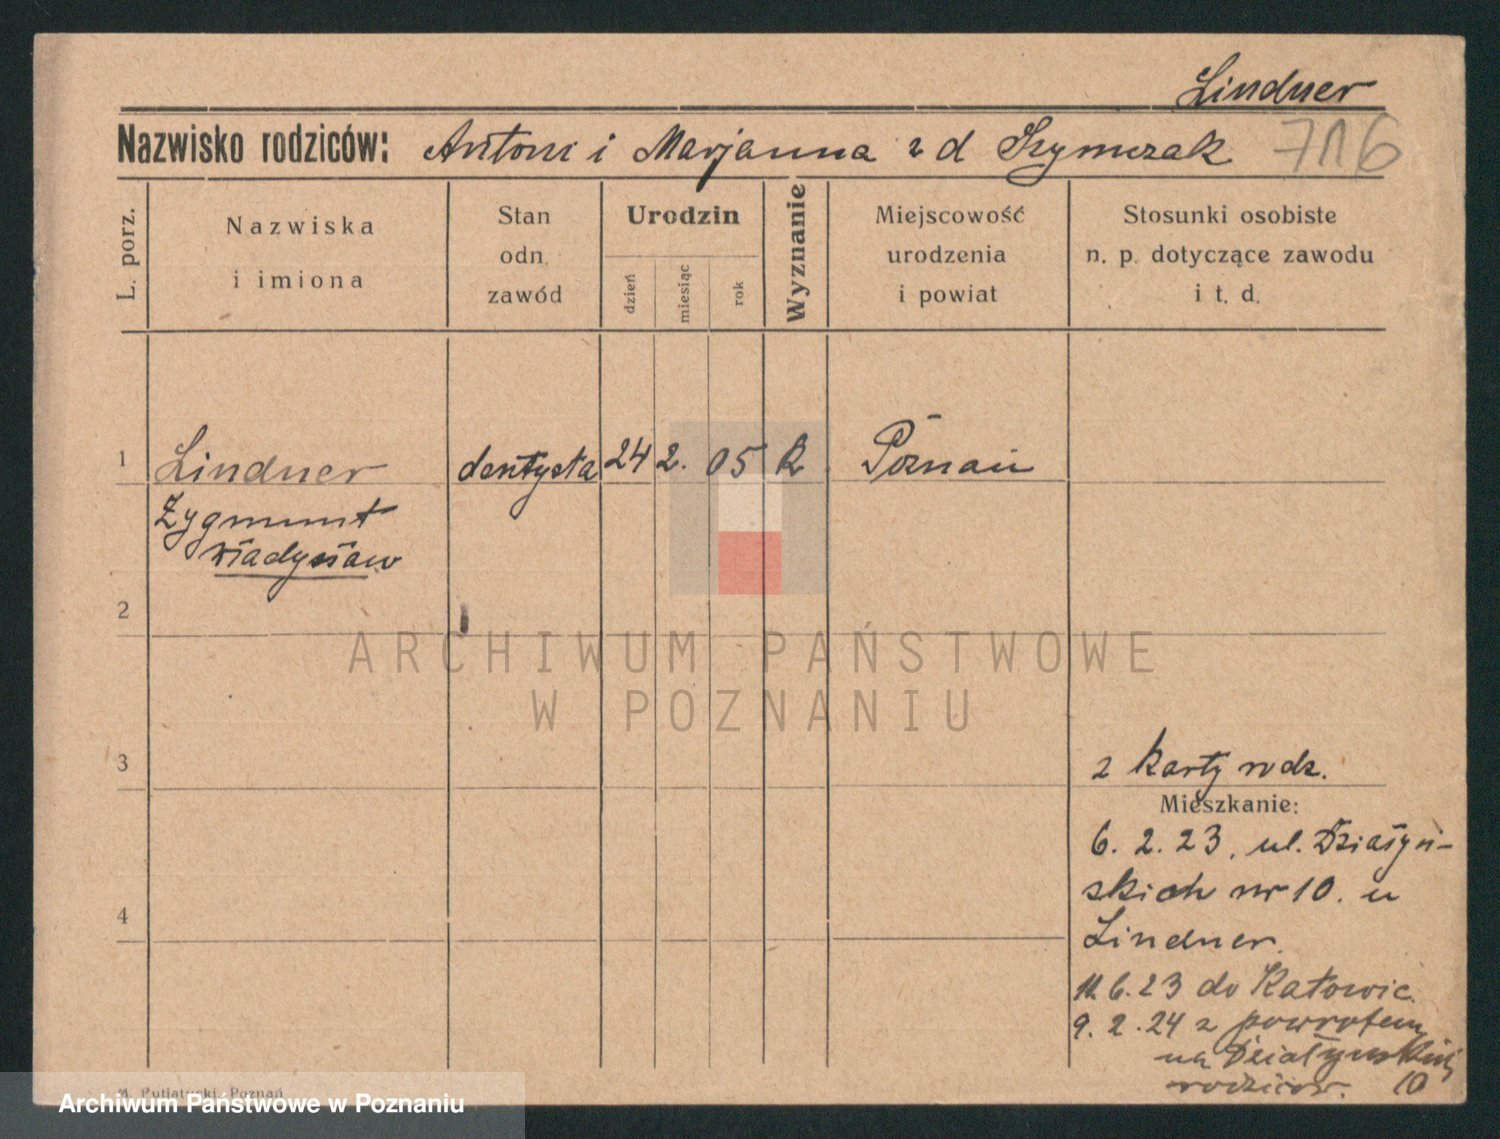 Lindner
Nazwisko rodziców: Antoni i Marjanna z d Szymczak
716
L. porz.
Nazwiska
i imiona
Stan
odn.
zawód
Urodzin
dzień
miesiąc
rok
Wyznanie
Miejscowość
urodzenia
i powiat
Stosunki osobiste
n. p. dotyczące zawodu
i t. d.
1 Lindner dentysta 24 2. 05 R. Poznań
Zygmunt
Władysław
2
ARCHIWUM PAŃSTWOWE
W POZNANIU
3
z karty rodz.
Mieszkanie:
6. 2. 23. ul. Działyń-
skich nr 10. u
4
Lindner.
11. 6. 23 do Katowic.
9. 2. 24 z powrotem
na Działyńskich
rodziców. 10
M. Putiatycki, Poznań
Archiwum Państwowe w Poznaniu